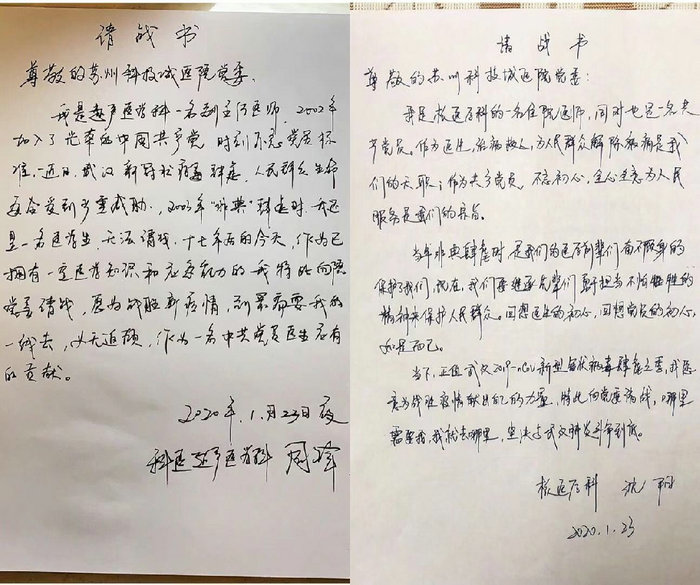 请战书
尊敬的苏州科技城医院党委:
我是超声医学科一名副主任医师, 2002年
加入了光荣的中国共产党 时刻不忘党员标
准, 近日, 武汉新冠状病毒肆虐, 人民群众生命
安全受到严重威胁, 2003年"非典"肆虐时, 我还
是一名医学生 无法请战, 十七年后的今天, 作为已
拥有一定医学知识和应急能力的我特此向医院
党委请战, 愿为战胜新疫情, 如果需要我的
一线去, 义无返顾, 作为一名中共党员医生应有
的贡献。
2020年.1月23日夜
科医超声医学科 周
请战书
尊敬的苏州科技城医院党委:
我是核医学科的一名住院医师, 同时也是一名共
产党员。作为医生, 治病救人, 为人民群众解除病痛是我
们的天职; 作为共产党员, 不忘初心, 全心全意为人民
服务是我们的宗旨。
当年非典肆虐时, 是我们的医疗前辈们奋不顾身的
保护了我们, 现在, 我们要继承先辈们勇于担当不怕牺牲的
精神来保护人民群众。回想医生的初心, 回想党员的初心,
如是而已。
当下, 正值武汉2019-nCoV新型冠状病毒肆虐之季, 我愿
意为战胜疫情献出自己的力量, 特此向党委请战, 哪里
需要我, 我就去哪里, 坚决与武汉肺炎斗争到底。
核医学科 沈
2020.1.23